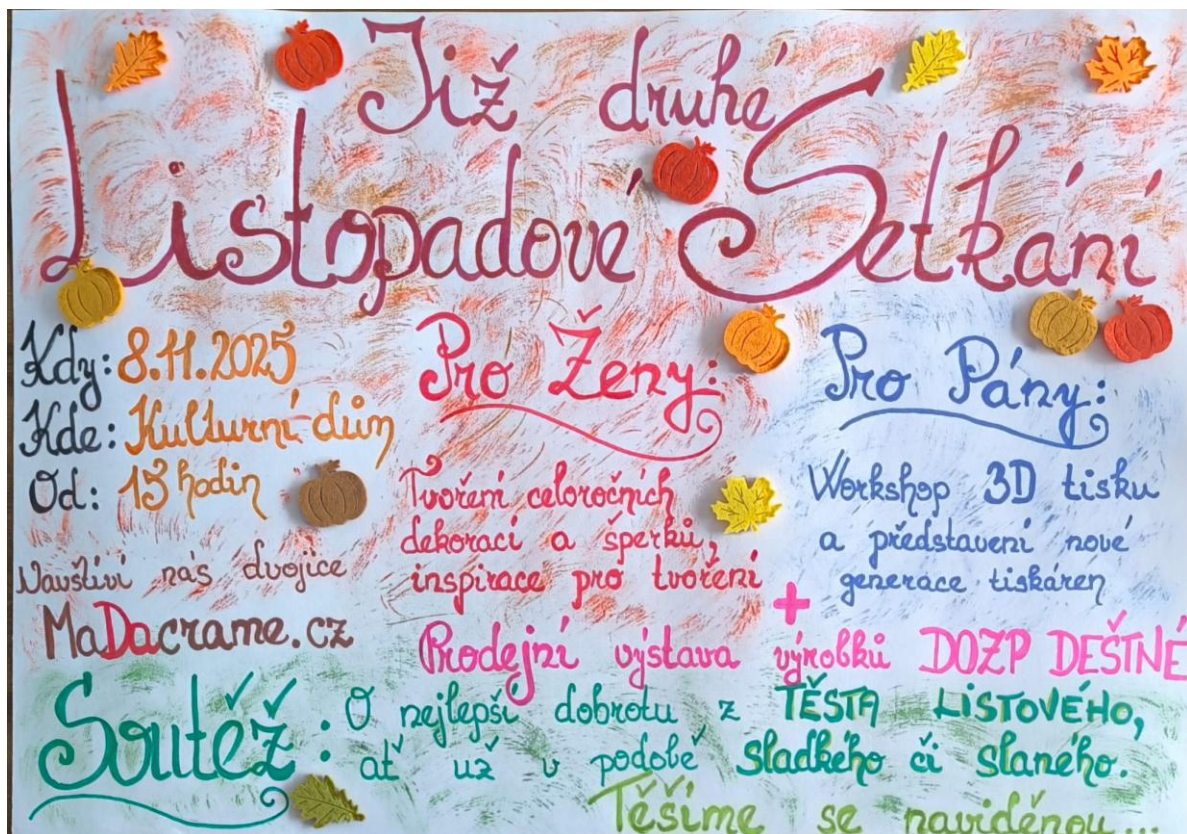 Již druhé
Listopadové Setkání
Kdy: 8.11.2025
Kde: Kulturní dům
Od: 15 hodin
Navštíví nás dvojice
MaDacrame.cz
Pro Ženy:
Tvoření celoročních
dekorací a šperků,
inspirace pro tvoření
Pro Pány:
Workshop 3D tisku
a představení nové
generace tiskáren
+
Prodejní výstava výrobků DOZP DEŠTNÉ
Soutěž: O nejlepší dobrotu z TĚSTA LISTOVÉHO,
ať už v podobě sladkého či slaného.
Těšíme se naviděnou...